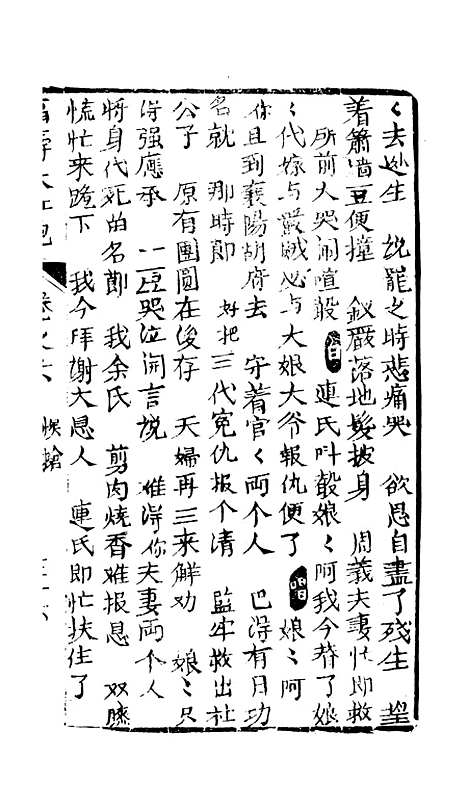 〱去妙生　说罷之時悲痛哭　欲思自盡了殘生　望
着簫墙豆便撞　釵嚴落地髮披身　周義夫妻忙即救
所前大哭闹喧殷　白　連氏叫殷娘〱阿我今替了娘
〱代嫁与嚴賊必与大娘大爷報仇便了　唱　娘〻阿
你且到襄陽胡府去　守着官〱両个人　巴淂有日功
名就　那時節　好把三代冤仇报个清　监牢救出杜
公子　原有團圓在後存　夫婦再三来解劝　娘〻只
淂强應承　一豆哭泣闹言说　难淂你夫妻両个人
将身代死的名節　我余氏　剪肉燒香难报恩　双膝
慌忙来跪下　我今拜謝大恩人　連氏即忙扶住了
卷之六